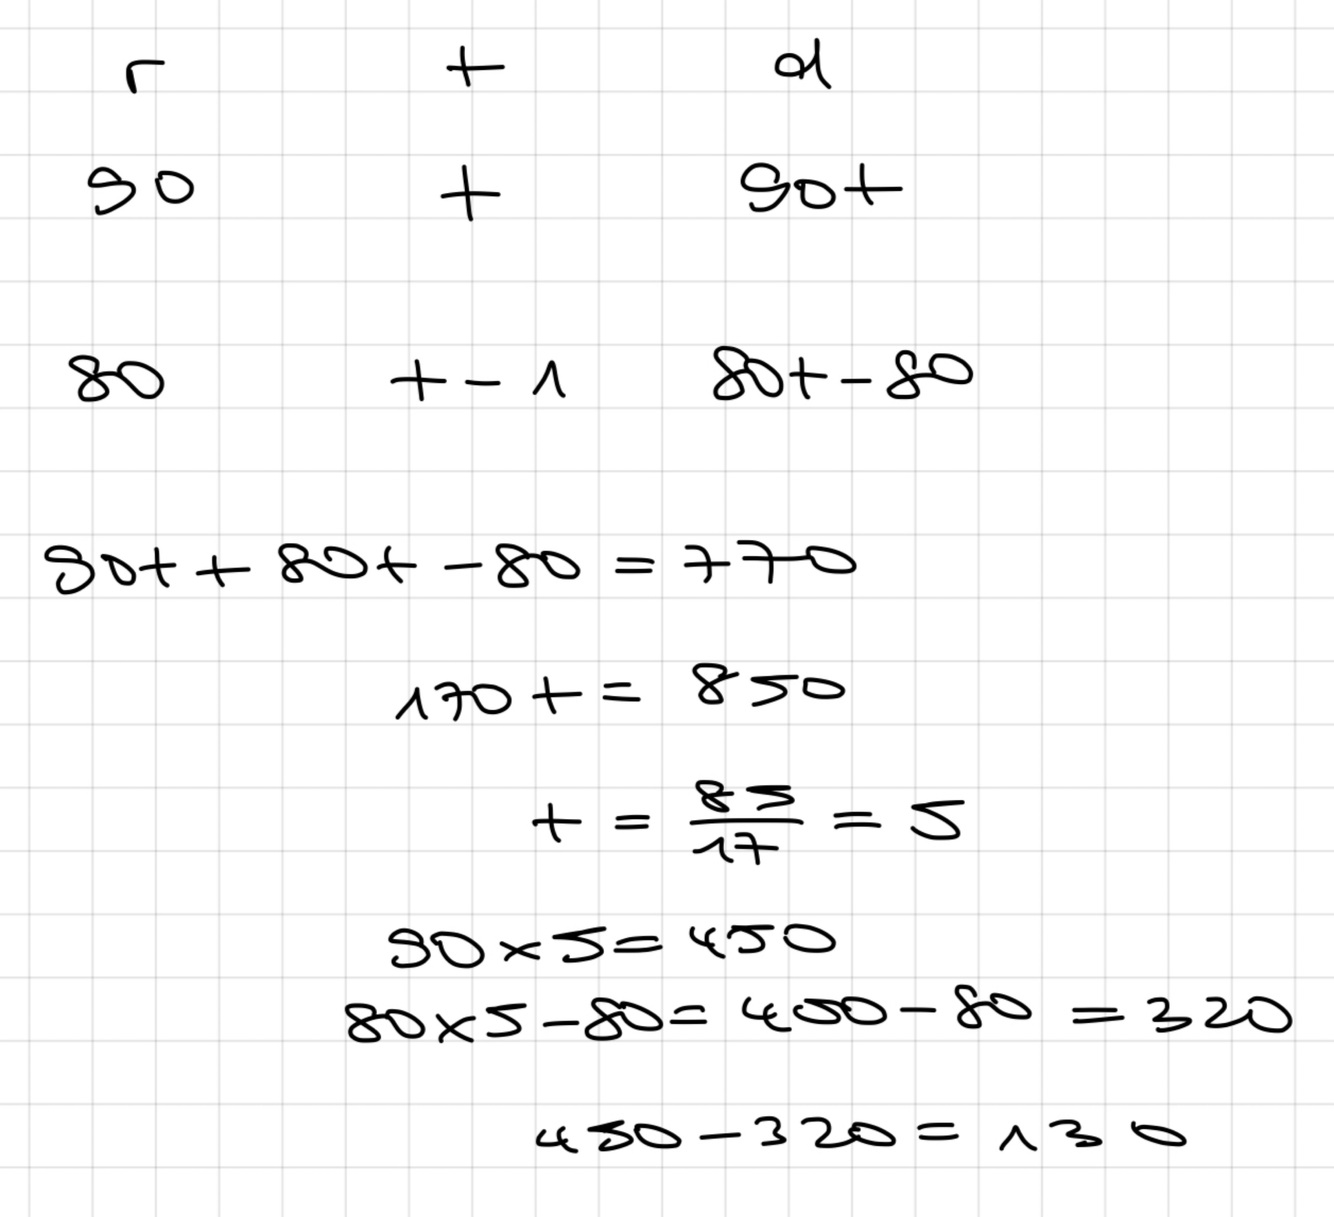 r t d
90 t 90t
80 t - 1 80t - 80
90t + 80t - 80 = 770
170t = 850
t = 85/17 = 5
90 × 5 = 450
80 × 5 - 80 = 400 - 80 = 320
450 - 320 = 130